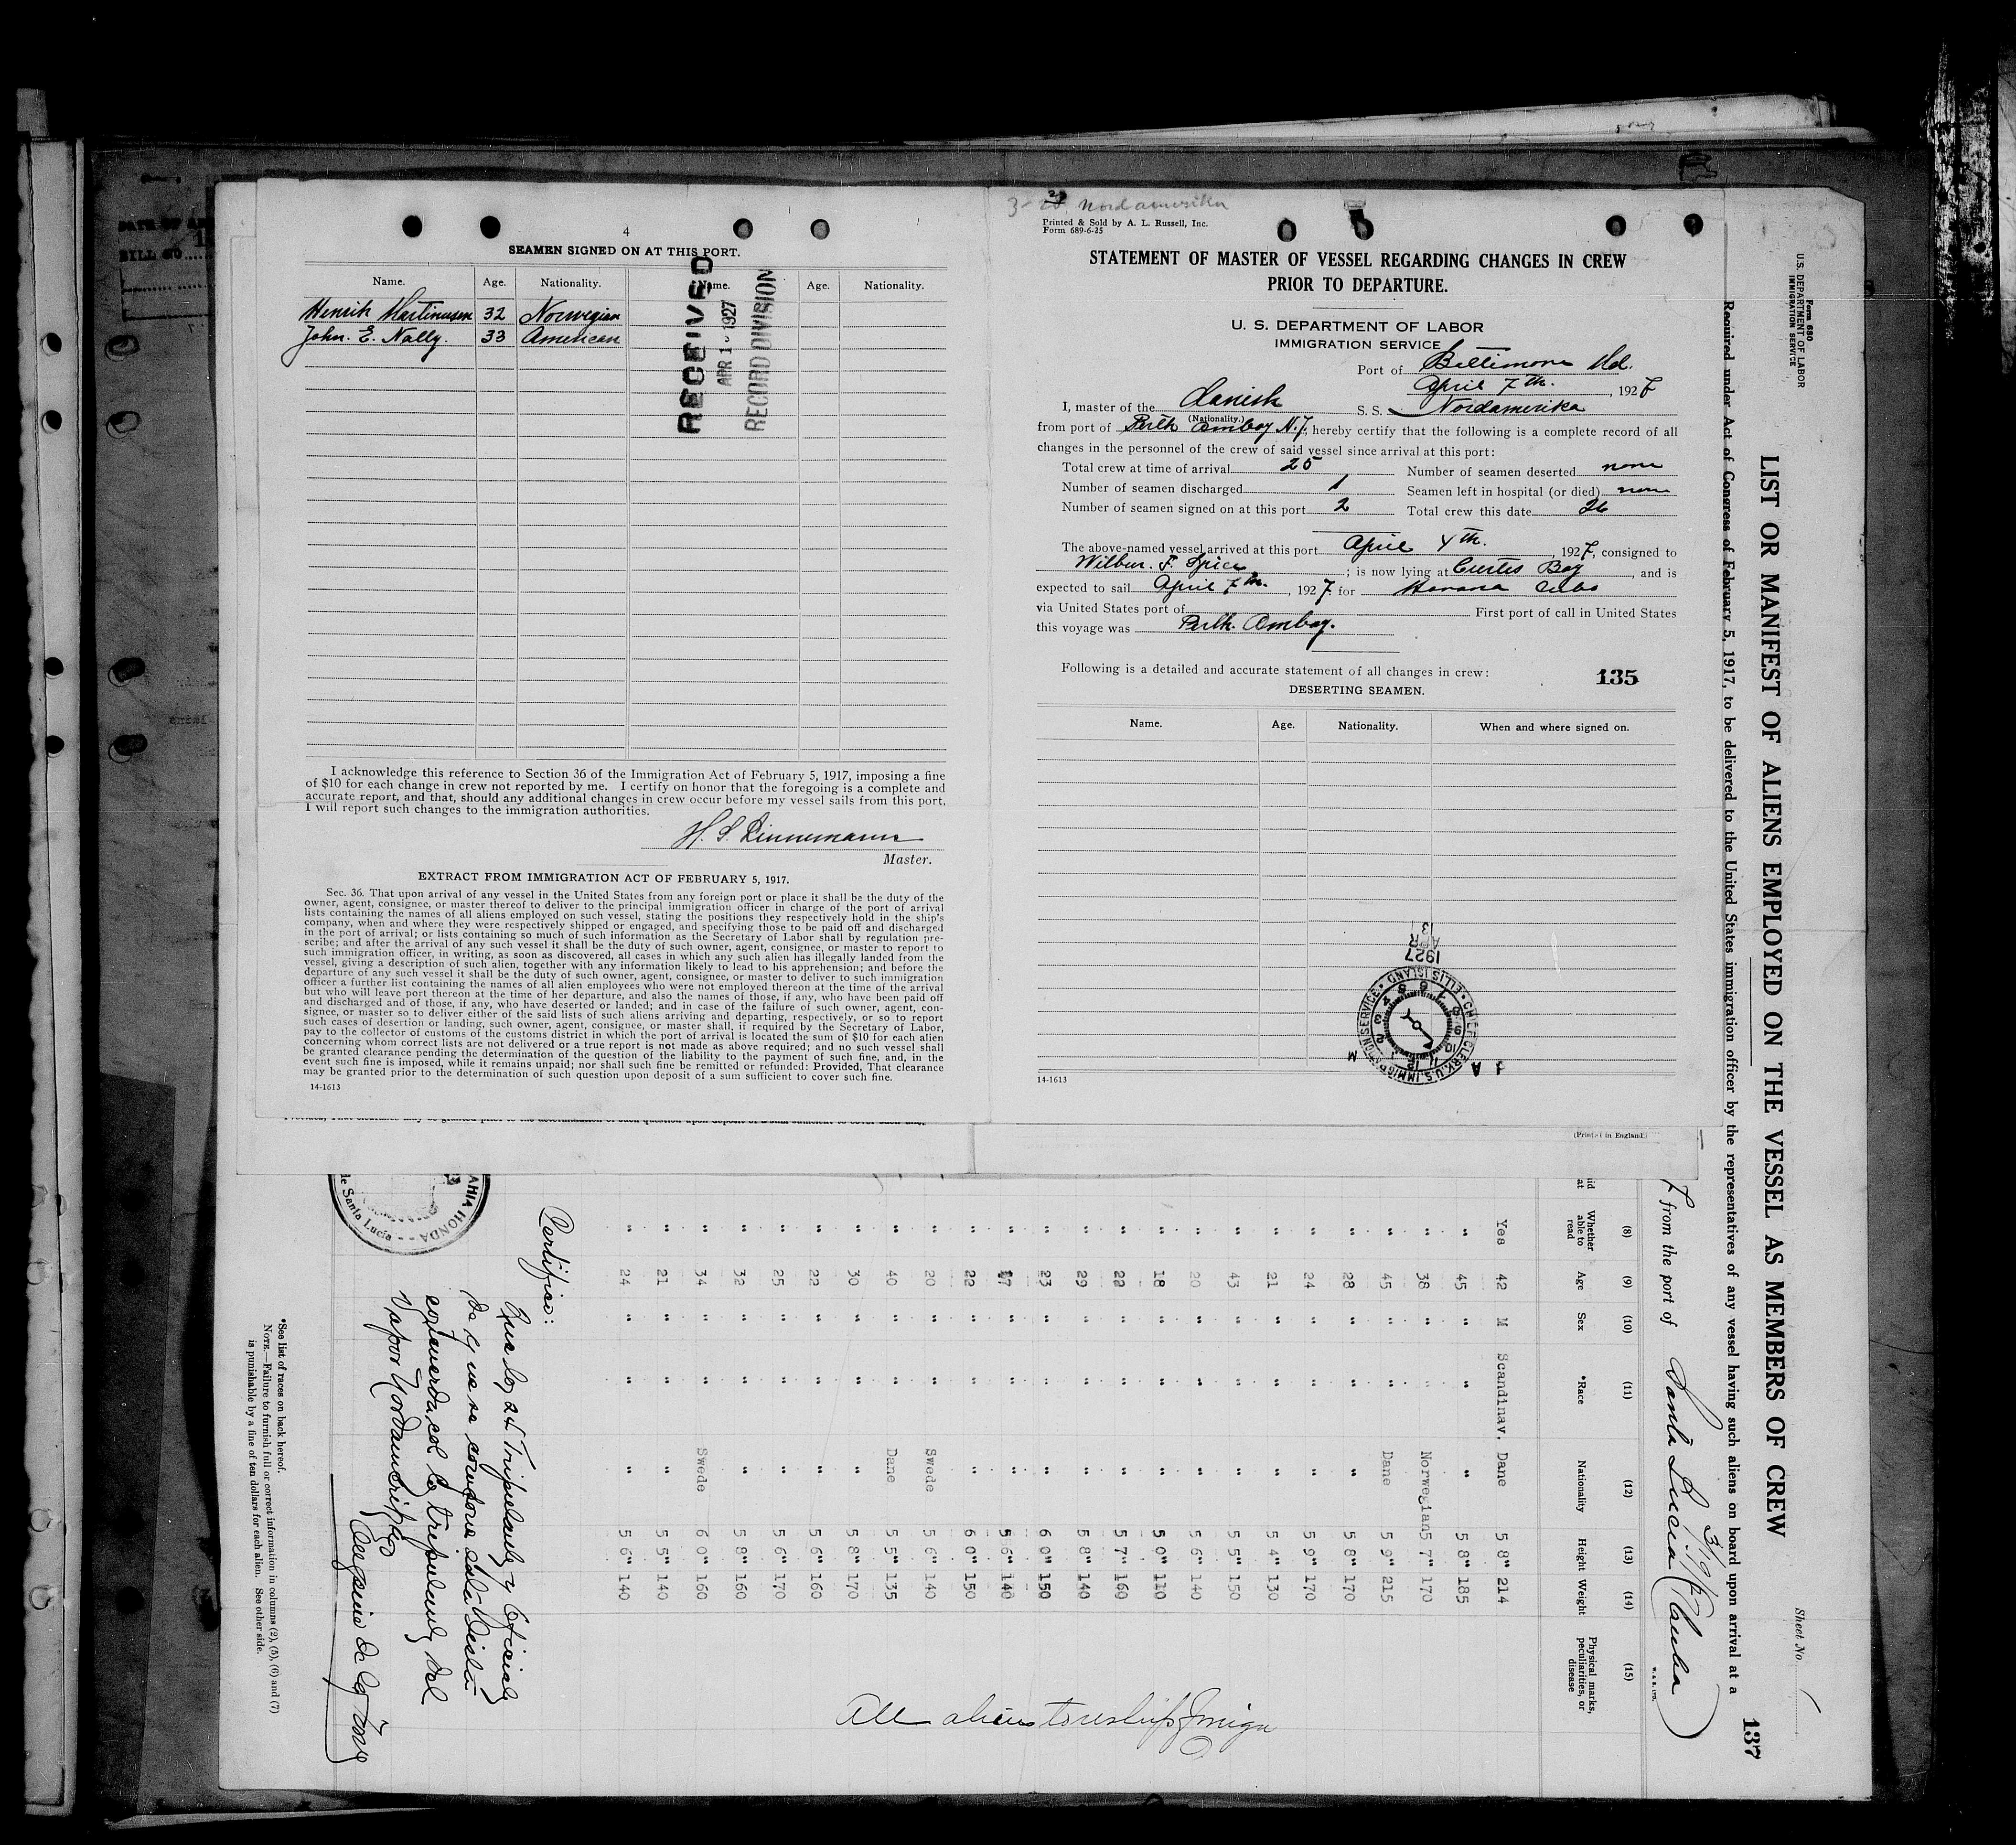 4
SEAMEN SIGNED ON AT THIS PORT.
Name. Age. Nationality. Name. Age. Nationality.
Henrik Martinusen 32 Norwegian
John. E. Nally. 33 American
RECEIVED
APR 1 1927
RECORD DIVISION
I acknowledge this reference to Section 36 of the Immigration Act of February 5, 1917, imposing a fine
of $10 for each change in crew not reported by me. I certify on honor that the foregoing is a complete and
accurate report, and that, should any additional changes in crew occur before my vessel sails from this port,
I will report such changes to the immigration authorities.
H. S. Linnemann
Master.
EXTRACT FROM IMMIGRATION ACT OF FEBRUARY 5, 1917.
Sec. 36. That upon arrival of any vessel in the United States from any foreign port or place it shall be the duty of the
owner, agent, consignee, or master thereof to deliver to the principal immigration officer in charge of the port of arrival
lists containing the names of all aliens employed on such vessel, stating the positions they respectively hold in the ship's
company, when and where they were respectively shipped or engaged, and specifying those to be paid off and discharged
in the port of arrival; or lists containing so much of such information as the Secretary of Labor shall by regulation pre-
scribe; and after the arrival of any such vessel it shall be the duty of such owner, agent, consignee, or master to report to
such immigration officer, in writing, as soon as discovered, all cases in which any such alien has illegally landed from the
vessel, giving a description of such alien, together with any information likely to lead to his apprehension; and before the
departure of any such vessel it shall be the duty of such owner, agent, consignee, or master to deliver to such immigration
officer a further list containing the names of all alien employees who were not employed thereon at the time of the arrival
but who will leave port thereon at the time of her departure, and also the names of those, if any, who have been paid off
and discharged and of those, if any, who have deserted or landed; and in case of the failure of such owner, agent, con-
signee, or master so to deliver either of the said lists of such aliens arriving and departing, respectively, or so to report
such cases of desertion or landing, such owner, agent, consignee, or master shall, if required by the Secretary of Labor,
pay to the collector of customs of the customs district in which the port of arrival is located the sum of $10 for each alien
concerning whom correct lists are not delivered or a true report is not made as above required; and no such vessel shall
be granted clearance pending the determination of the question of the liability to the payment of such fine, and, in the
event such fine is imposed, while it remains unpaid; nor shall such fine be remitted or refunded: Provided, That clearance
may be granted prior to the determination of such question upon deposit of a sum sufficient to cover such fine.
14-1613
Nordamerika
Printed & Sold by A. L. Russell, Inc.
Form 689-6-25
STATEMENT OF MASTER OF VESSEL REGARDING CHANGES IN CREW
PRIOR TO DEPARTURE.
U. S. DEPARTMENT OF LABOR
IMMIGRATION SERVICE
Port of Baltimore Md.
April 7th. , 1927
I, master of the Danish S. S. Nordamerika
(Nationality.)
from port of Perth Amboy N.J. hereby certify that the following is a complete record of all
changes in the personnel of the crew of said vessel since arrival at this port:
Total crew at time of arrival 25 Number of seamen deserted none
Number of seamen discharged 1 Seamen left in hospital (or died) none
Number of seamen signed on at this port 2 Total crew this date 26
The above-named vessel arrived at this port April 4th. , 1927, consigned to
Wilbur. F. Spice ; is now lying at Curtis Bay , and is
expected to sail April 7th. , 1927 for Havana Cuba
via United States port of First port of call in United States
this voyage was Perth. Amboy.
Following is a detailed and accurate statement of all changes in crew: 135
DESERTING SEAMEN.
Name. Age. Nationality. When and where signed on.
1927
APR
13
CHIEF CLERK, U.S. IMMIGRATION SERVICE • ELLIS ISLAND •
14-1613
(Printed in England)
Form 680
U.S. DEPARTMENT OF LABOR
IMMIGRATION SERVICE
Sheet No.
LIST OR MANIFEST OF ALIENS EMPLOYED ON THE VESSEL AS MEMBERS OF CREW
137
Required under Act of Congress of February 5, 1917, to be delivered to the United States immigration officer by the representatives of any vessel having such aliens on board upon arrival at a
7 from the port of Santa Lucia (Cuba)
(8) (9) (10) (11) (12) (13) (14) (15)
Whether able to read Age Sex *Race Nationality Height Weight Physical marks, peculiarities, or disease
Yes 42 M Scandinav. Dane 5 8" 214
" 45 " " " 5 8" 185
" 38 " " Norwegian 5 7" 170
" 45 " " Dane 5 9" 215
" 28 " " " 5 8" 170
" 24 " " " 5 9" 170
" 21 " " " 5 4" 130
" 43 " " " 5 5" 150
" 20 " " " 5 6" 140
" 18 " " " 5 0" 110
" 22 " " " 5 7" 160
" 29 " " " 5 8" 140
" 23 " " " 6 0" 150
" 17 " " " 5 6" 140
" 22 " " " 6 0" 150
" 20 " " Swede 5 6" 140
" 40 " " Dane 5 5" 135
" 30 " " " 5 8" 170
" 22 " " " 5 6" 160
" 25 " " " 5 6" 170
" 32 " " " 5 8" 160
" 34 " " Swede 6 0" 160
" 21 " " " 5 5" 140
" 24 " " " 5 6" 140
All aliens to reship foreign
Certifico:
Que los 24 Tripulantes y Oficiales
de que se compone esta Lista
concuerda con los tripulantes del
Vapor Nordamerika
AHIA HONDA
de Santa Lucia
*See list of races on back hereof.
NOTE.—Failure to furnish full or correct information in columns (2), (5), (6) and (7)
is punishable by a fine of ten dollars for each alien. See other side.